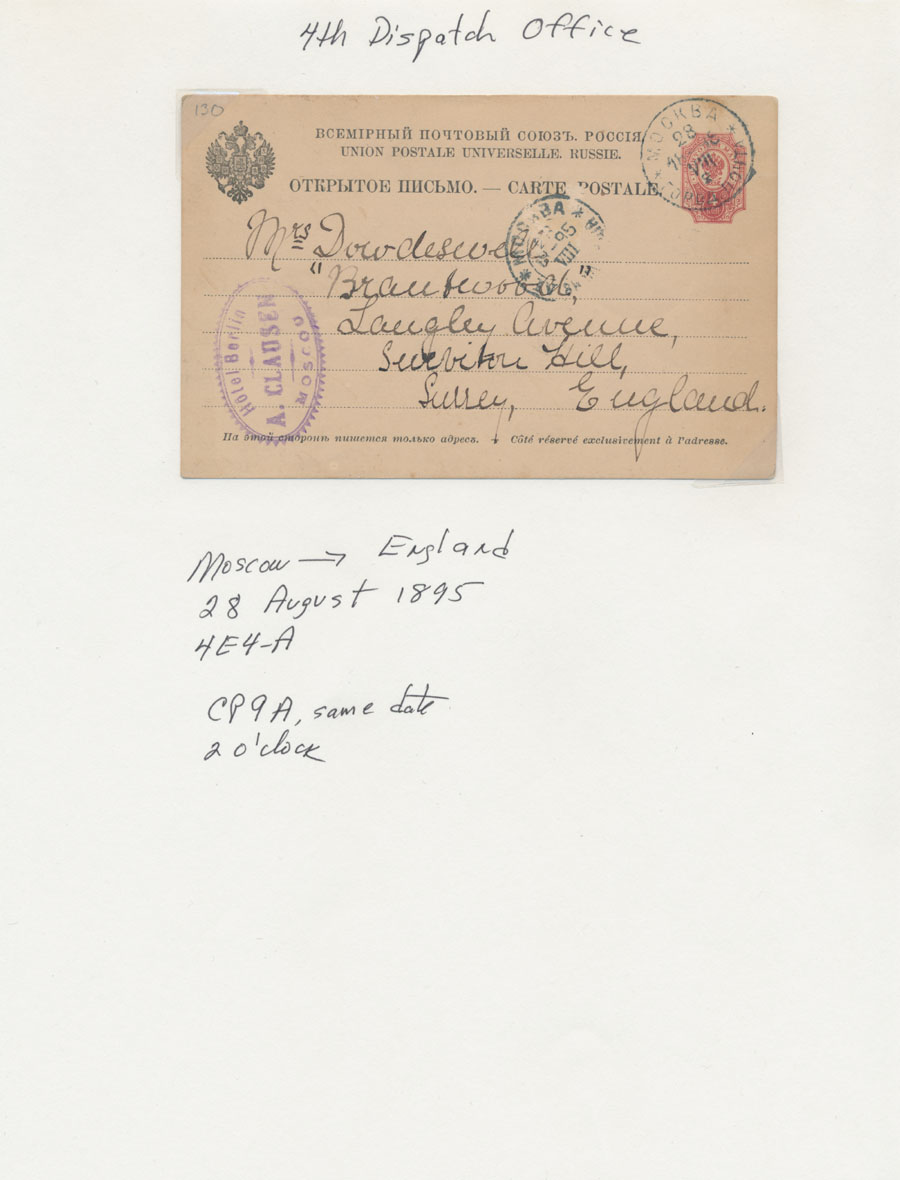 4th Dispatch Office
130
ВСЕМІРНЫЙ ПОЧТОВЫЙ СОЮЗЪ. РОССІЯ
UNION POSTALE UNIVERSELLE. RUSSIE.
ОТКРЫТОЕ ПИСЬМО. — CARTE POSTALE.
МОСКВА
28
VIII
МОСКВА
95
VIII
Mrs Dowdeswell
"Brantwood",
Langley Avenue,
Surbiton Hill,
Surrey, England.
Hôtel Berlin
A. CLAUSEN
MOSCOU
На этой сторонѣ пишется только адресъ. Côté réservé exclusivement à l'adresse.
Moscow → England
28 August 1895
4E4-A
CP9A, same date
2 o'clock